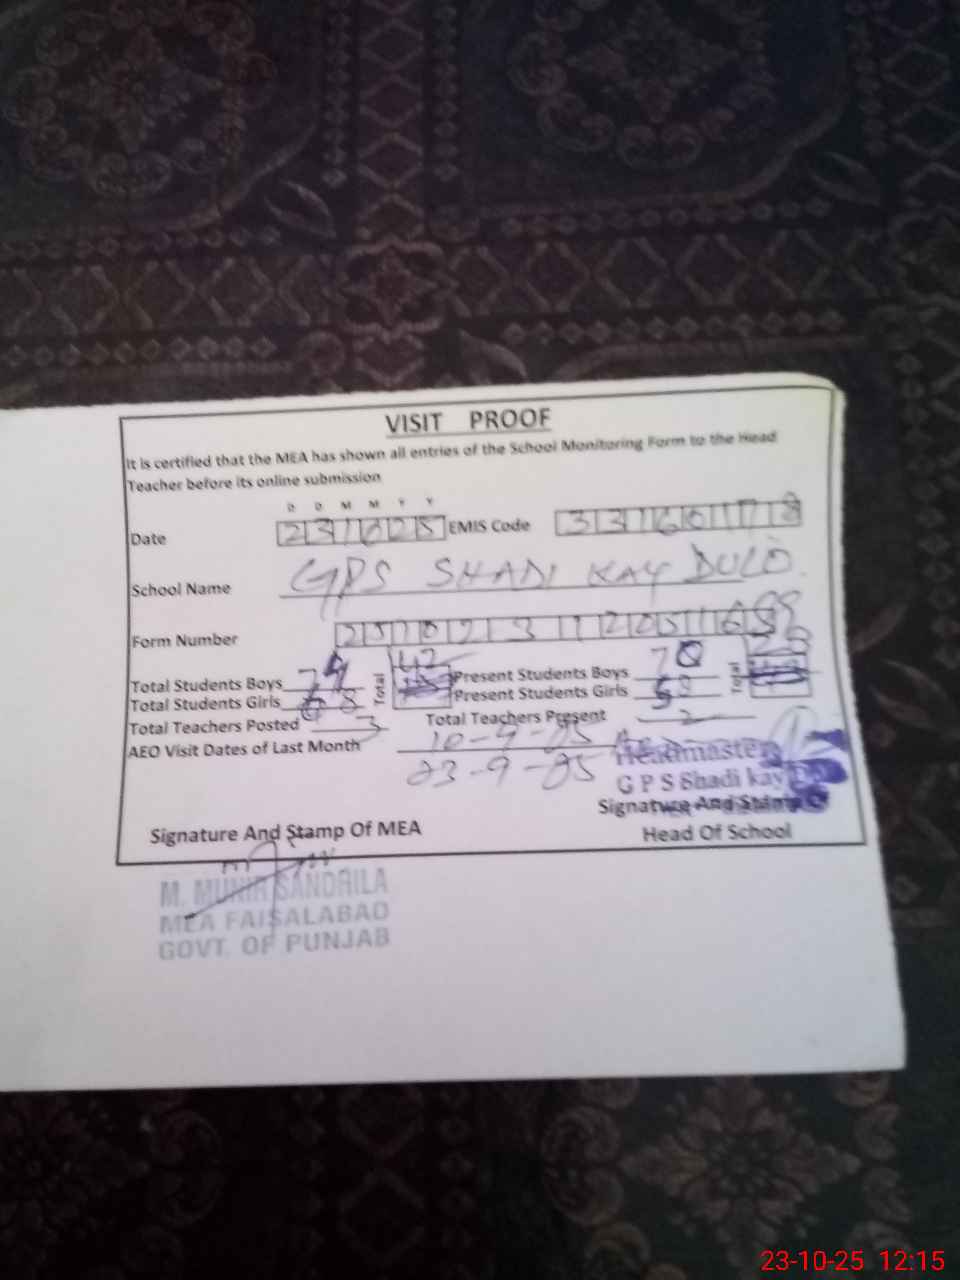 VISIT PROOF
It is certified that the MEA has shown all entries of the School Monitoring Form to the Head
Teacher before its online submission
D D M M Y Y
Date 231025 EMIS Code 33160178
School Name GPS SHADI KAY DULO
Form Number
Total Students Boys 74 142 Present Students Boys 70
Total Students Girls 68 Present Students Girls
Total Teachers Posted 3 Total Teachers Present 2
AEO Visit Dates of Last Month 10-9-25
23-9-25
Headmaster
G P S Shadi kay
Signature And Stamp Of
Signature And Stamp Of MEA Head Of School
M. MUNIR SANDHILA
MEA FAISALABAD
GOVT. OF PUNJAB
23-10-25 12:15